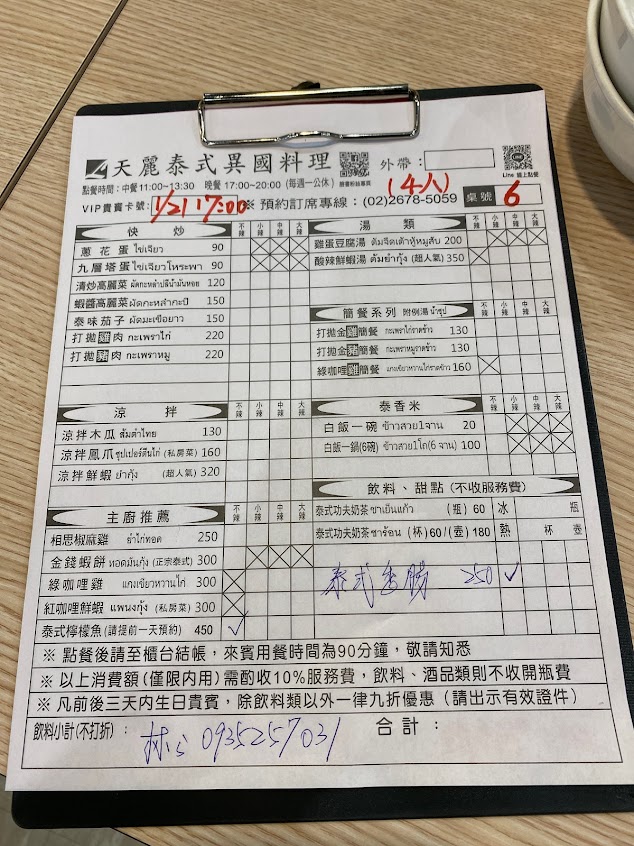 天麗泰式異國料理
外帶：
Line 線上點餐
點餐時間：中餐11:00~13:30 晚餐17:00~20:00 (每週一公休)
臉書粉絲專頁
VIP貴賓卡號： 1/21 17:00 ※ 預約訂席專線：(02)2678-5059 (4人) 桌號 6
快炒 不辣 小辣 中辣 大辣
蔥花蛋 ไข่เจียว 90
九層塔蛋 ไข่เจียวโหระพา 90
清炒高麗菜 ผัดกะหล่ำปลีน้ำมันหอย 120
蝦醬高麗菜 ผัดกะหล่ำกะปิ 150
泰味茄子 ผัดมะเขือยาว 150
打拋雞肉 กะเพราไก่ 220
打拋豬肉 กะเพราหมู 220
湯類 不辣 小辣 中辣 大辣
雞蛋豆腐湯 ต้มจืดเต้าหู้หมูสับ 200
酸辣鮮蝦湯 ต้มยำกุ้ง (超人氣) 350
簡餐系列 附例湯 น้ำซุป 不辣 小辣 中辣 大辣
打拋金雞簡餐 กะเพราไก่ราดข้าว 130
打拋金豬簡餐 กะเพราหมูราดข้าว 130
綠咖哩雞簡餐 แกงเขียวหวานไก่ราดข้าว 160
涼拌 不辣 小辣 中辣 大辣
涼拌木瓜 ส้มตำไทย 130
涼拌鳳爪 ซุปเปอร์ตีนไก่ (私房菜) 160
涼拌鮮蝦 ยำกุ้ง (超人氣) 320
泰香米 不辣 小辣 中辣 大辣
白飯一碗 ข้าวสวย1จาน 20
白飯一鍋(6碗) ข้าวสวย1โถ(6 จาน) 100
主廚推薦 不辣 小辣 中辣 大辣
相思椒麻雞 ยำไก่ทอด 250
金錢蝦餅 ทอดมันกุ้ง (正宗泰式) 300
綠咖哩雞 แกงเขียวหวานไก่ 300
紅咖哩鮮蝦 แพนงกุ้ง (私房菜) 300
泰式檸檬魚 (請提前一天預約) 450 ✓
飲料、甜點 (不收服務費)
泰式功夫奶茶 ชาเย็นแก้ว (瓶) 60 冰 瓶
泰式功夫奶茶 ชาร้อน (杯) 60/(壺) 180 熱 杯 壺
泰式香腸 250 ✓
※ 點餐後請至櫃台結帳，來賓用餐時間為90分鐘，敬請知悉
※ 以上消費額(僅限內用)需酌收10%服務費，飲料、酒品類則不收開瓶費
※ 凡前後三天內生日貴賓，除飲料類以外一律九折優惠（請出示有效證件）
飲料小計(不打折)： 林's 0935257031 合計：